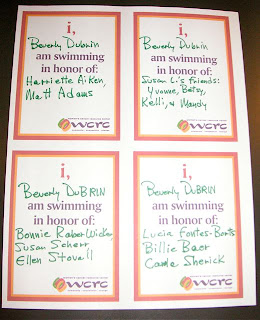 i,
Beverly Dubrin
am swimming
in honor of:
Harriette Aiken,
Matt Adams
wcrc
i,
Beverly Dubrin
am swimming
in honor of:
Susan Li's friends:
Yvonne, Betsy,
Kelli, & Mandy
wcrc
i,
Beverly DuBRIN
am swimming
in honor of:
Bonnie Raber Wickes
Susan Scherr
Ellen Stovall
wcrc
i,
Beverly DuBRIN
am swimming
in honor of:
Lucia Fontes-Borts
Billie Baer
Sherick
wcrc